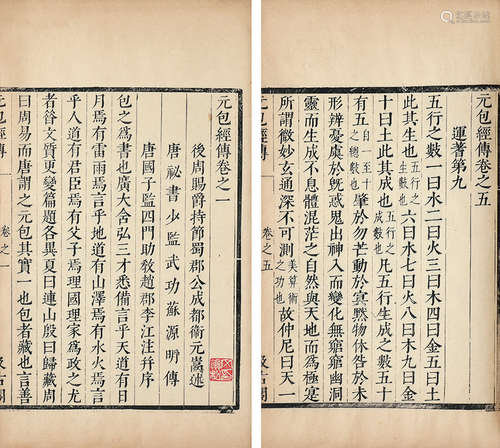 元包經傳卷之一
後周賜爵持節蜀郡公成都衞元嵩述
唐秘書少監武功蘇源明傳
唐國子監四門助敎趙郡李江注幷序
包之爲書也廣大含弘三才悉備言乎天道有日
月焉有雷雨焉言乎地道有山澤焉有水火焉言
乎人道有君臣焉有父子焉理國理家爲政之尤
者咎文質更變篇題各異夏曰連山殷曰歸藏周
曰周易而唐謂之元包其實一也包者藏也言善
元包經傳
卷之一
汲古閣
元包經傳卷之五
運蓍第九
五行之數一曰水二曰火三曰木四曰金五曰土
此其生也五行之生數也六曰水七曰火八曰木九曰金
十曰土此其成也五行之成數也凡五行生成之數五十
有五自一至十之總數也肇於勿芒動於㝠黙物休咎於未
形辨憂虞於旣惑鬼出神入而變化無窮窮幽洞
靈而生成不息體混茫之自然與天地而爲極寔
所謂微妙玄通深不可測美算術之功也故仲尼曰天一
元包經傳
卷之五
汲古閣